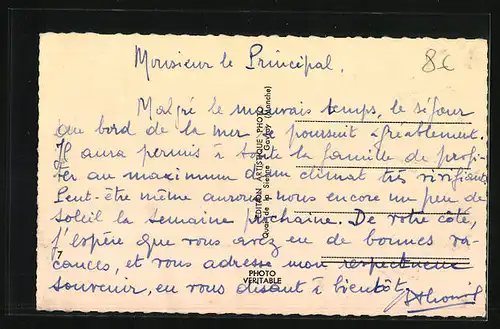 8c
Monsieur le Principal,
Malgré le mauvais temps, le séjour
au bord de la mer se poursuit agréablement.
Il aura permis à toute la famille de profi-
ter au maximum d'un climat très vivifiant.
Peut-être même aurons-nous encore un peu de
soleil la semaine prochaine. De votre côté,
j'espère que vous avez eu de bonnes va-
cances, et vous adresse mon respectueux
souvenir, en vous disant à bientôt.
EDITION ARTISTIQUE PHOTO
Quai de la Sienne - Gavray (Manche)
7
PHOTO
VÉRITABLE